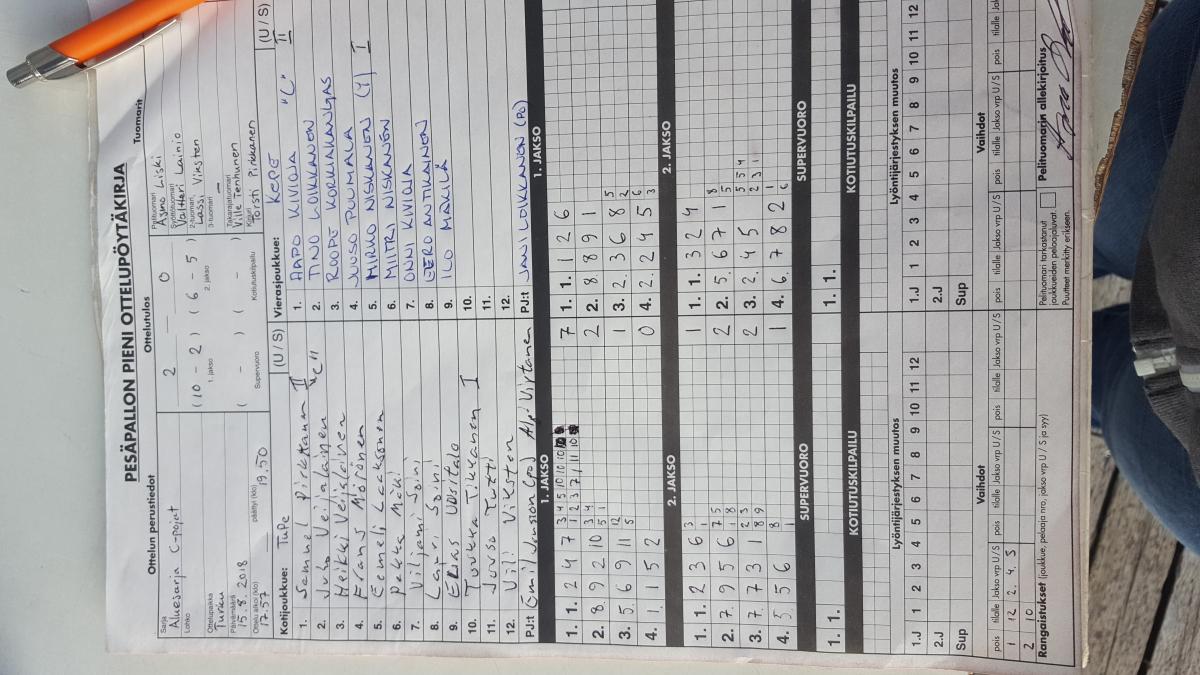 PESÄPALLON PIENI OTTELUPÖYTÄKIRJA
Ottelun perustiedot
Ottelutulos
Tuomarit
Sarja
Aluesarja C-pojat
Lohko
Ottelupaikka
Turku
Päivämäärä
15.8.2018
Ottelu alkoi (klo)
17.57
päättyi (klo)
19.50
2 – 0
(10 – 2) (6 – 5)
1. jakso
2. jakso
( – ) ( – )
Supervuoro
Kotiutuskilpailu
Pelituomari
Asmo Liski
Syöttötuomari
Valtteri Lainio
2-tuomari
Lassi Viksten
3-tuomari
–
Takarajatuomari
Ville Tenhunen
Kirjuri
Torsti Pirkkanen
Kotijoukkue: TuPe (U / S)
1. Samuel Pirkkanen II
2. Juho Veijalainen "C"
3. Heikki Veijalainen
4. Frans Mörönen
5. Eemeli Laaksonen
6. Pekka Mäki
7. Viljami Soini
8. Lauri Soini
9. Elias Uusitalo
10. Tuukka Tikkanen I
11. Juuso Tutti
12. Veli Viksten
Vierasjoukkue: KePe (U / S)
1. AAPO KIVIOJA "C" II
2. TINO LOIKKANEN
3. ROOPE KORKIAKANGAS
4. JUUSO PUUMALA
5. MIRKO NISKANEN (Y) I
6. MIITRI NISKANEN
7. ONNI KIVIOJA
8. EERO ANTIKAINEN
9. ILO MÄKILÄ
10.
11.
12.
PJ:t
PJ:t JANI LOIKKANEN (PJ)
1. JAKSO
1. JAKSO
1. 1. 2 4 7
2. 8 9 2 10
3. 5 6 9 11
4. 1 5 2
7 1. 1. 1 2 6
2 2. 8 8 9 1
1 3. 2 3 6 8
0 4. 2 2 4 5
2. JAKSO
2. JAKSO
1. 1. 2 3 6
2. 7 9 5 6
3. 7 7 3 1
4. 5 5 6
1 1. 1. 3 2 4
2 2. 5 6 7 1
2 3. 2 4 5
1 4. 6 7 8 2
SUPERVUORO
SUPERVUORO
1. 1.
1. 1.
KOTIUTUSKILPAILU
KOTIUTUSKILPAILU
Lyöntijärjestyksen muutos
Lyöntijärjestyksen muutos
1.J 1 2 3 4 5 6 7 8 9 10 11 12
2.J
Sup
1.J 1 2 3 4 5 6 7 8 9 10 11 12
2.J
Sup
Vaihdot
Vaihdot
pois tilalle Jakso vrp U/S pois tilalle Jakso vrp U/S pois tilalle Jakso vrp U/S
pois tilalle Jakso vrp U/S pois tilalle Jakso vrp U/S pois tilalle Jak
1 12 2. 4. S
2 10
Rangaistukset (joukkue, pelaaja nro, jakso vrp U / S ja syy)
Pelituomari tarkastanut joukkueiden pelaajaluvat.
Puutteet merkitty erikseen.
Pelituomarin allekirjoitus